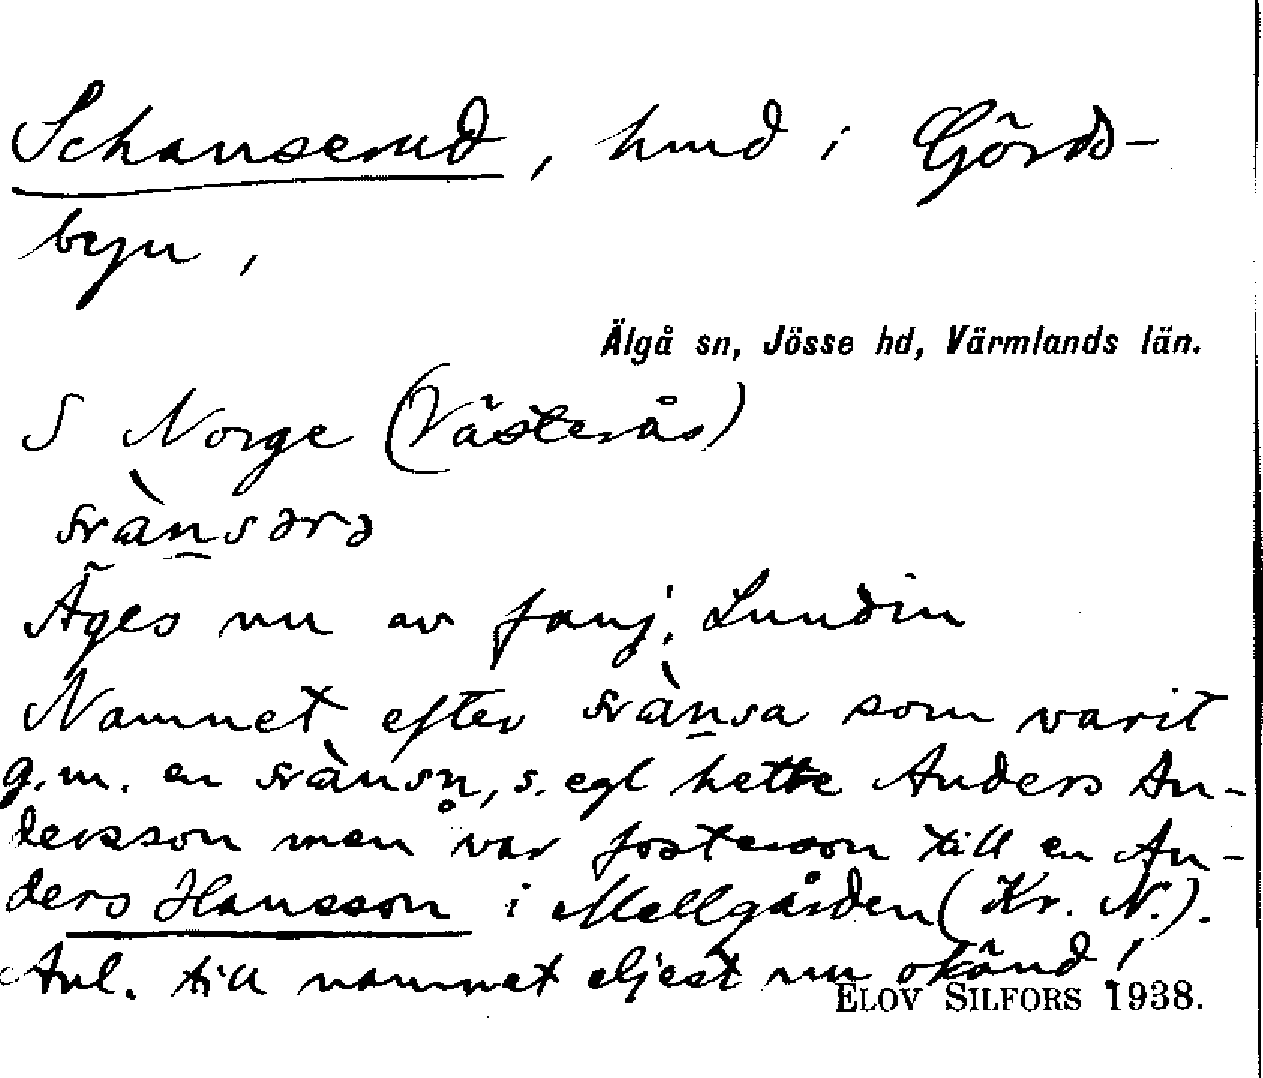 Schanserud, hmd i Görds-
byn,
Älgå sn, Jösse hd, Värmlands län.
S Norge (Västerås)
Äges nu av fanj. Lundin
Namnet efter som varit
g.m. en s. egl hette Anders An-
dersson men var fosterson till en An-
ders Hansson i Mellgården (Kr. N.).
Anl. till namnet eljest nu okänd!
ELOV SILFORS 1938.